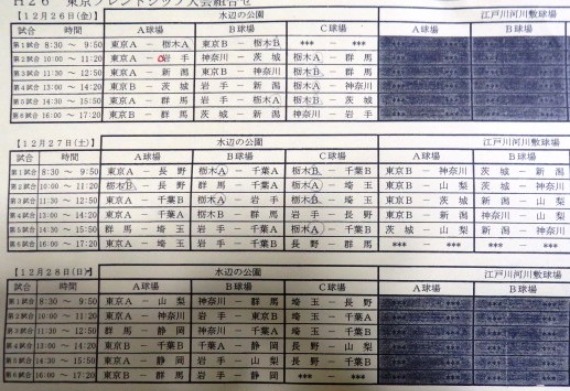 H26 東京フレンドシップ大会組合せ
【12月26日(金)】 水辺の公園 江戸川河川敷球場
試合 時間 A球場 B球場 C球場 A球場 B球場
第1試合 8:30 ～ 9:50 東京A － 栃木A 東京B － 栃木B *** － ***
第2試合 10:00 ～ 11:20 東京A － 岩手 神奈川 － 茨城 栃木A － 群馬
第3試合 11:30 ～ 12:50 東京A － 新潟 東京B － 神奈川 栃木B － 群馬
第4試合 13:00 ～ 14:20 東京B － 茨城 岩手 － 新潟 栃木A － 神奈川
第5試合 14:30 ～ 15:50 東京A － 群馬 岩手 － 栃木A 栃木B － 茨城
第6試合 16:00 ～ 17:20 茨城 － 新潟 神奈川 － 岩手 栃木B － 群馬
【12月27日(土)】 水辺の公園 江戸川河川敷球場
試合 時間 A球場 B球場 C球場 A球場 B球場
第1試合 8:30 ～ 9:50 東京A － 長野 栃木A － 千葉A 栃木B － 千葉B 東京B － 神奈川 茨城 － 新潟
第2試合 10:00 ～ 11:20 栃木B － 長野 群馬 － 千葉A 栃木A － 埼玉 東京B － 山梨 茨城 － 神奈川
第3試合 11:30 ～ 12:50 東京A － 千葉B 栃木A － 岩手 栃木B － 埼玉 東京B － 茨城 新潟 － 山梨
第4試合 13:00 ～ 14:20 東京A － 千葉A 栃木B － 群馬 岩手 － 長野 東京B － 新潟 神奈川 － 山梨
第5試合 14:30 ～ 15:50 群馬 － 埼玉 岩手 － 千葉A 栃木A － 千葉B 茨城 － 山梨 新潟 － 神奈川
第6試合 16:00 ～ 17:20 東京A － 埼玉 岩手 － 千葉B 長野 － 群馬 *** － *** *** － ***
【12月28日(日)】 水辺の公園 江戸川河川敷球場
試合 時間 A球場 B球場 C球場 A球場 B球場
第1試合 8:30 ～ 9:50 東京A － 山梨 神奈川 － 群馬 埼玉 － 長野
第2試合 10:00 ～ 11:20 東京A － 神奈川 岩手 － 東京B 埼玉 － 千葉A
第3試合 11:30 ～ 12:50 群馬 － 静岡 長野 － 千葉A 埼玉 － 千葉B
第4試合 13:00 ～ 14:20 東京A － 千葉B 千葉A － 静岡 岩手 － 東京B
第5試合 14:30 ～ 15:50 東京A － 静岡 岩手 － 山梨 長野 － 千葉B
第6試合 16:00 ～ 17:20 群馬 － 山梨 岩手 － 静岡 *** － ***